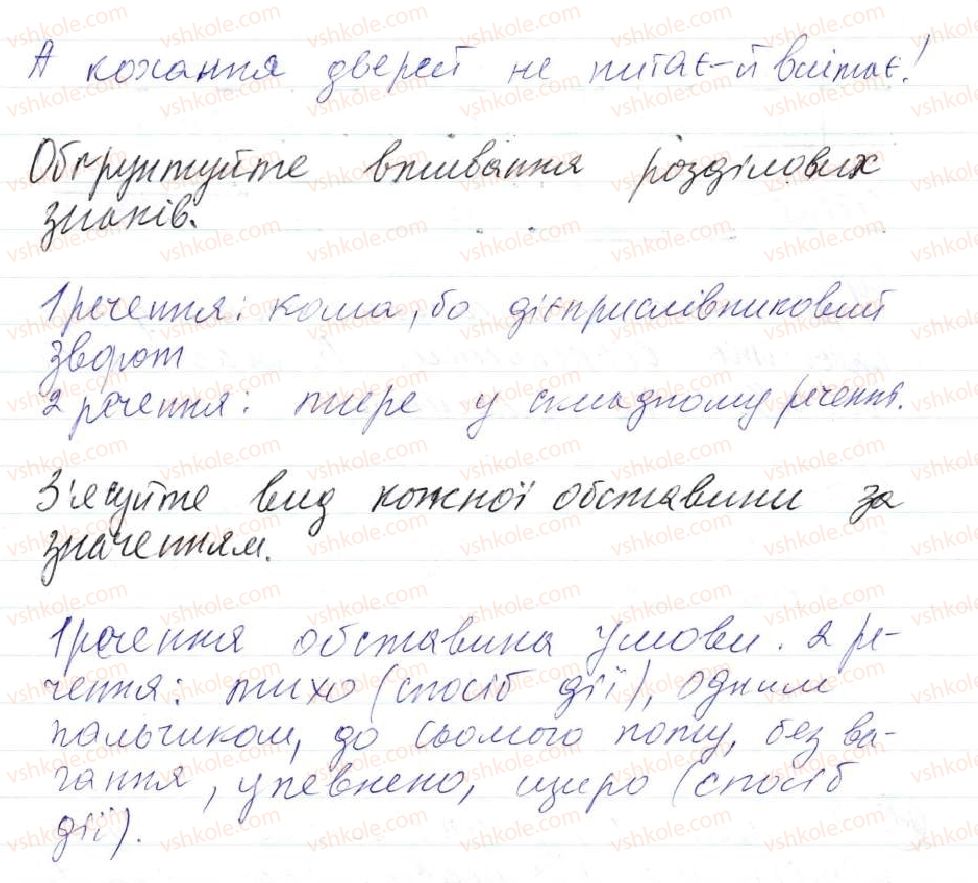 А кохання дверей не питає-й влітає!
Обґрунтуйте вживання розділових
знаків.
1 речення: кома, бо дієприслівниковий
зворот
2 речення: тире у складному реченні.
З'ясуйте вид кожної обставини за
значенням.
1 речення обставина умови. 2 ре-
чення: тихо (спосіб дії), одним
пальчиком, до сьомого поту, без ва-
гання, упевнено, щиро (спосіб
дії).